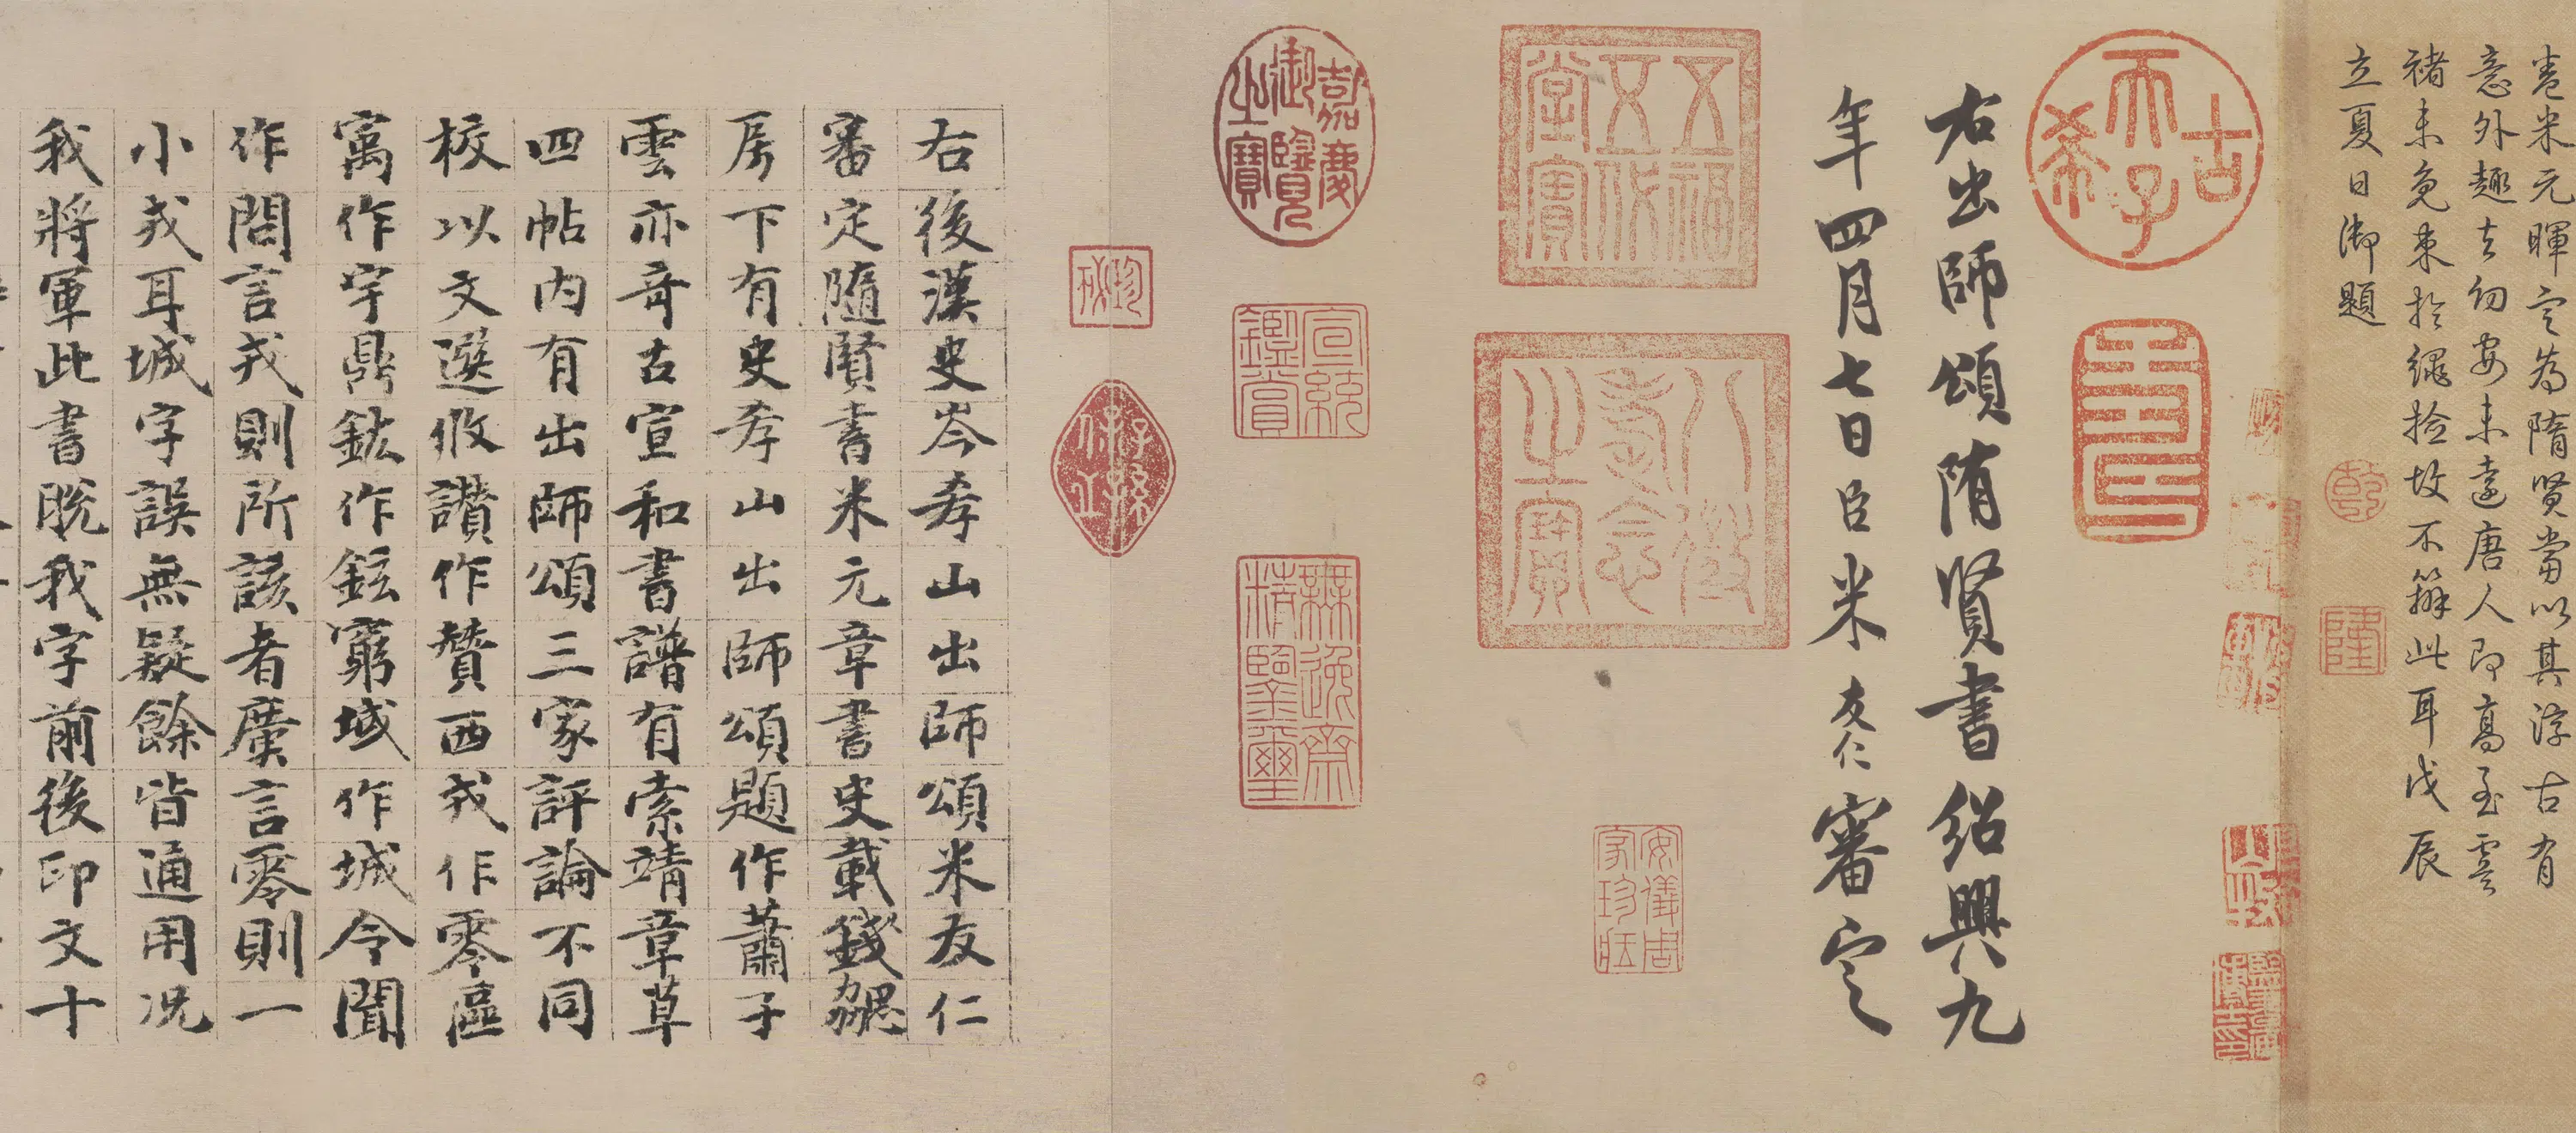 卷米元暉定為隋賢當以其淳古有
意外趣去幼安未遠唐人即高至虞
褚未免束於繩撿故不辨此耳戊辰
立夏日御題
乾
隆
古希天子
壽
右出師頌隋賢書紹興九
年四月七日臣米友仁審定
五福五代堂寶
八徵耄念之寶
安儀周家珍藏
嘉慶御覽之寶
宣統鑑賞
無逸齋精鑒璽
子孫保之
右後漢史岑孝山出師頌米友仁
審定隨賢書米元章書史載錢勰
房下有史孝山出師頌題作蕭子
雲亦奇古宣和書譜有索靖章草
四帖內有出師頌三家評論不同
校以文選攸讚作贊西戎作零區
寓作宇鼎鉉作鉉窮城作城今聞
作問言戎則所該者廣言零則一
小戎耳城字誤無疑餘皆通用况
我將軍此書脫我字前後印文十